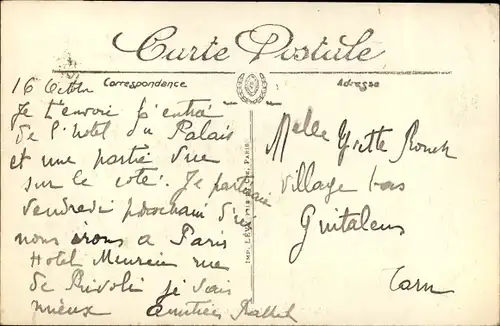 Carte Postale
Correspondance
Adresse
16 Octbr
Je t'envoie l'entré
de l'hotel du Palais
et une partie vue
sur le coté. Je partirai
vendredi prochain d'ici
nous irons a Paris
Hotel Meurice rue
de Rivoli je vais
mieux amitiés
Melle Yvette
village bas
Guitalens
Tarn
IMP. LÉVY FILS & CIE, PARIS